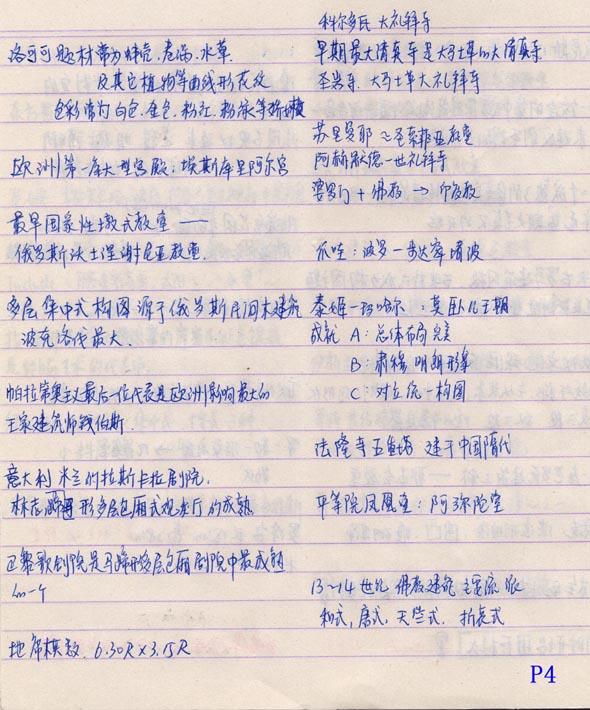 洛可可题材常为蚌壳、卷涡、水草.
及其它植物等曲线形花纹
色彩常为白色、金色、粉红、粉绿等娇嫩
欧洲第一座大型宫殿：埃斯库里阿尔宫
最早国家性纪念式教堂——
俄罗斯沃土涅谢尼亚教堂.
多层集中式构图源于俄罗斯民间木建筑
波克洛伐最大.
帕拉第奥主义最后一位代表是欧洲影响最大的
王家建筑师钱伯斯.
意大利米兰的拉斯卡拉剧院.
标志蹄形多层包厢式观众厅的成熟
巴黎歌剧院是马蹄形多层包厢剧院中最成熟
的一个
地席模数 6.30R×3.15R
科尔多瓦 大礼拜寺
早期最大清真寺是大马士革的大清真寺
圣岩寺、大马士革大礼拜寺
苏里曼耶 ≈ 圣索菲亚教堂
阿赫默德一世礼拜寺
婆罗门 + 佛教 → 印度教
爪哇：波罗-步达窣堵波
泰姬-玛哈尔：莫卧儿王朝
成就 A：总体布局完美
B：肃穆明朗形象
C：对立统一构图
法隆寺五重塔 建于中国隋代
平等院凤凰堂：阿弥陀堂
13~14世纪 佛教建筑 主要流派
和式，唐式，天竺式. 折衷式
P4